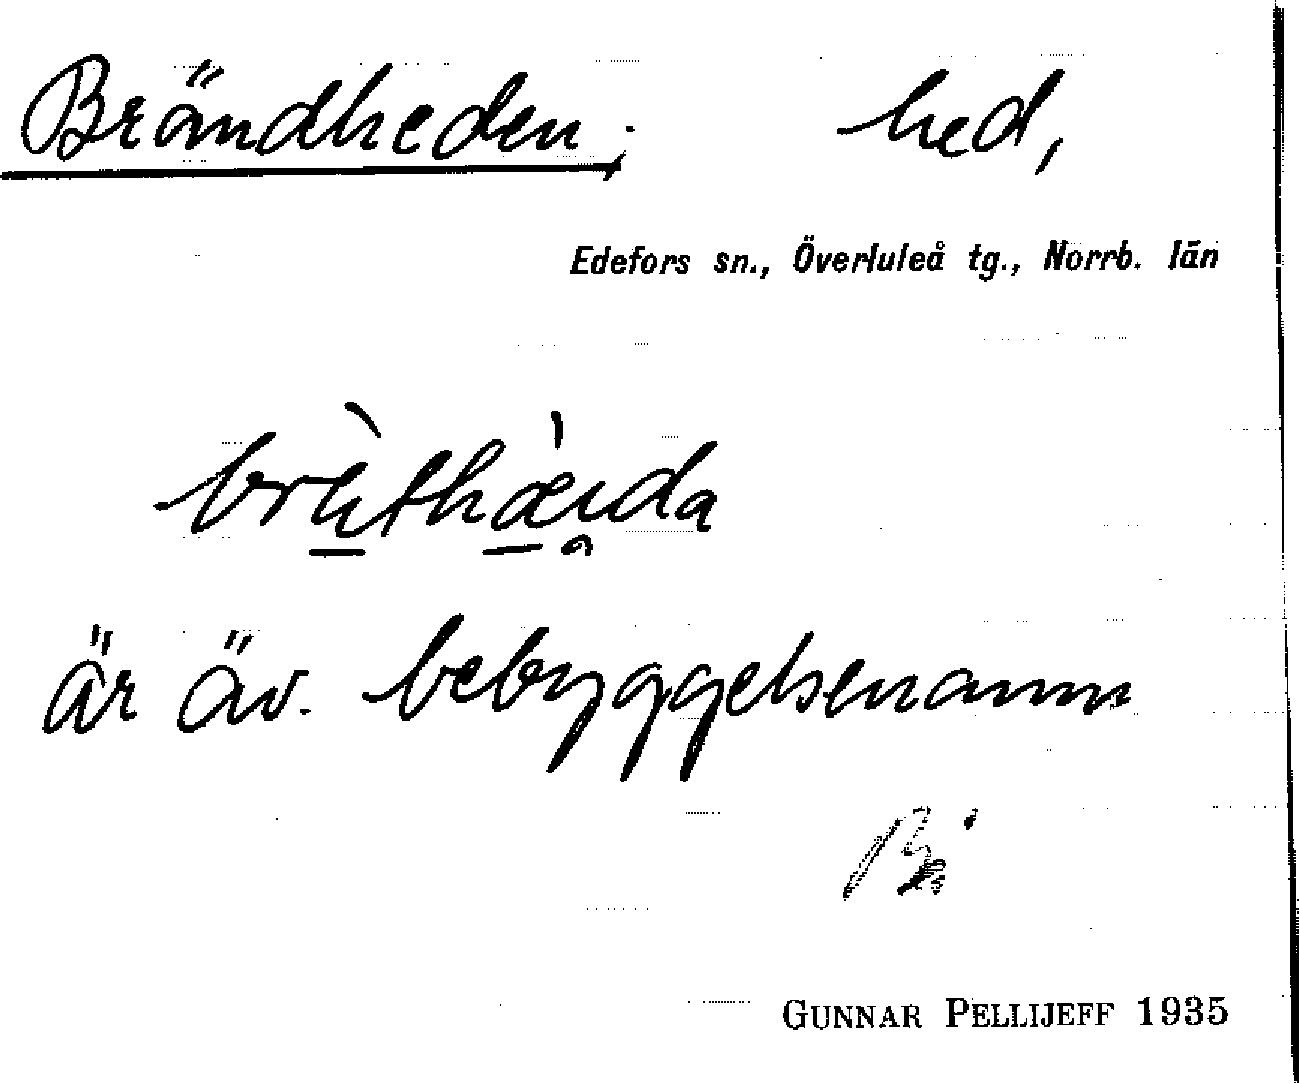 Brändheden, hed,
Edefors sn., Överluleå tg., Norrb. län
är äv. bebyggelsenamn
GUNNAR PELLIJEFF 1935